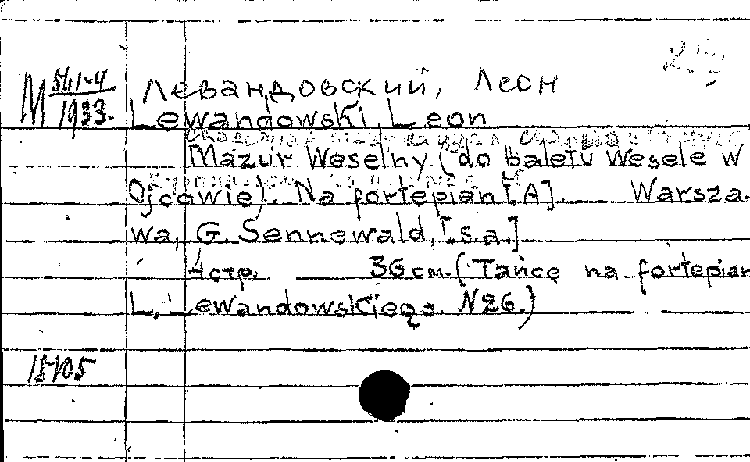 M 54,1-4
1933.
Левандовский, Леон
Lewandowski, Leon
Mazur Weselny (do baletu Wesele w
Ojcowie). Na fortepian [A]. Warsza
wa, G. Sennewald, [s.a.]
4стр. 36см. (Tańce na fortepian
L. Lewandowskiego. N26.)
15105